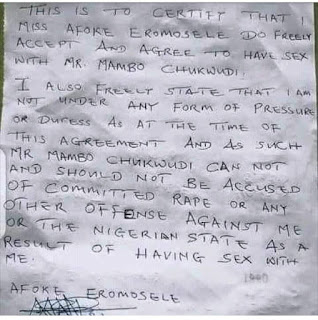 THIS IS TO CERTIFY THAT I
MISS AFOKE EROMOSELE DO FREELY
ACCEPT AND AGREE TO HAVE SEX
WITH MR. MAMBO CHUKWUDI.
I ALSO FREELY STATE THAT I AM
NOT UNDER ANY FORM OF PRESSURE
OR DURESS AS AT THE TIME OF
THIS AGREEMENT AND AS SUCH
MR MAMBO CHUKWUDI CAN NOT
AND SHOULD NOT BE ACCUSED
OF COMMITTED RAPE OR ANY
OTHER OFFENSE AGAINST ME
OR THE NIGERIAN STATE AS A
RESULT OF HAVING SEX WITH
ME.
AFOKE EROMOSELE